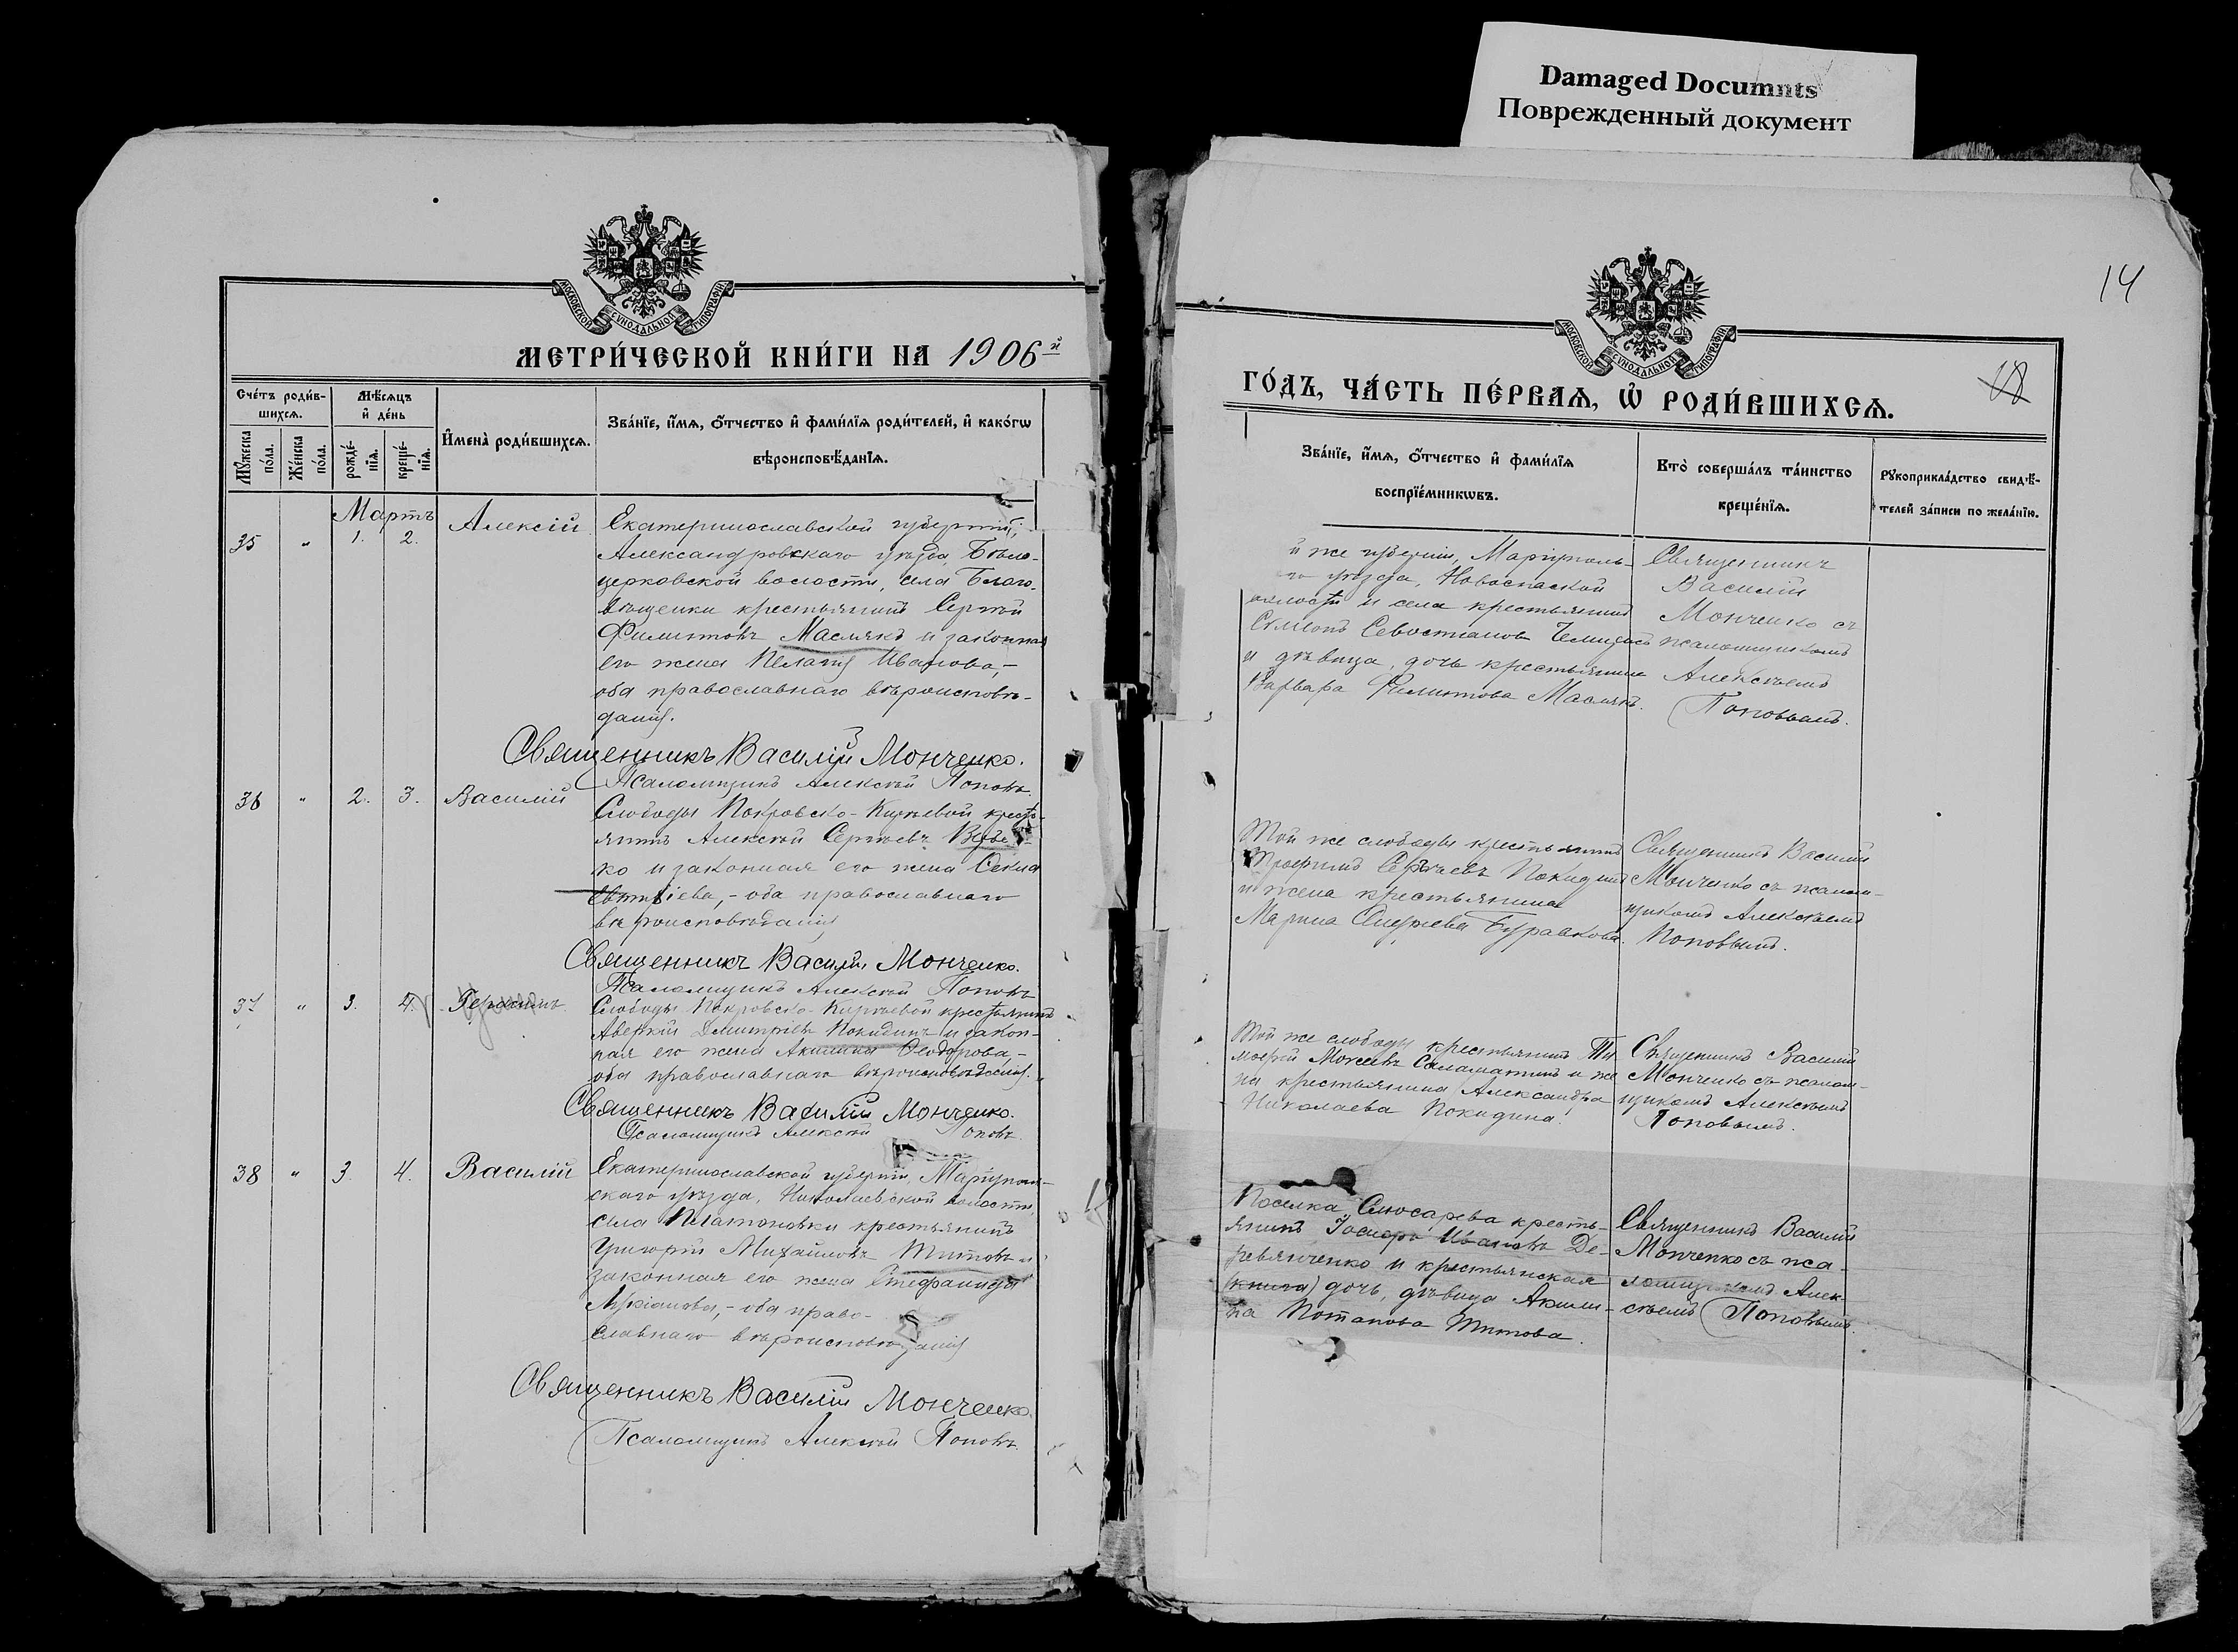 Damaged Documnts
Поврежденный документ
14
18
МОСКОВСКОЙ СУНОДАЛЬНОЙ ТИПОГРАФІИ
МЕТРИ́ЧЕСКОЙ КНИ́ГИ НА 1906й
Сче́тъ роди́в-
шихсѧ.
Мѣ́сѧцъ
и҆ де́нь
И҆мена̀ роди́вшихсѧ.
Зва́нїе, и҆́мѧ, ѻ҆́тчество и҆ фами́лїѧ роди́телей, и҆ како́гѡ
вѣроисповѣ́данїѧ.
Мꙋ́жеска
по́ла.
Же́нска
по́ла.
рожде́-
нїѧ.
креще́-
нїѧ.
Мартъ
35 " 1. 2. Алексій
Екатеринославской губерніи,
Александровскаго уѣзда, Бѣло-
церковской волости, села Благо-
вѣщенки крестьянинъ Сергѣй
Филиповъ Маслякъ и законная
его жена Пелагія Иванова,-
оба православнаго вѣроисповѣ-
данія.
Священникъ Василій Монченко.
Псаломщикъ Алексѣй Поповъ.
36 " 2. 3. Василій
Слободы Покровско-Кирѣевой кресть-
янинъ Алексѣй Сергѣевъ
ко и законная его жена Ѳекла
Евтихіева,- оба православнаго
вѣроисповѣданія
Священникъ Василій Монченко.
Псаломщикъ Алексѣй Поповъ
37 " 3. 4. Герасимъ
Слободы Покровско-Кирѣевой крестьянинъ
Аверкій Дмитріевъ Покидинъ и закон-
ная его жена Акилина Ѳеодорова,-
оба православнаго вѣроисповѣданія.
Священникъ Василій Монченко.
Псаломщикъ Алексѣй Поповъ.
38 " 3. 4. Василій
Екатеринославской губерніи, Маріуполь-
скаго уѣзда, Николаевской волости,
села Платоновки крестьянинъ
Григорій Михайловъ Титовъ и
законная его жена Стефанида
Лукіанова,- оба право-
славнаго вѣроисповѣданія
Священникъ Василій Монченко.
Псаломщикъ Алексѣй Поповъ.
МОСКОВСКОЙ СУНОДАЛЬНОЙ ТИПОГРАФІИ
ГО́ДЪ, ЧА́СТЬ ПЕ́РВАѦ, Ѡ҆ РОДИ́ВШИХСѦ.
Зва́нїе, и҆́мѧ, ѻ҆́тчество и҆ фами́лїѧ
воспрїе́мникѡвъ.
Кто̀ соверша́лъ та́инство
креще́нїѧ.
Рꙋкоприкла́дство свидѣ́-
телей за́писи по жела́нїю.
й же губерніи, Маріуполь-
го уѣзда, Новоспаской
волости и села крестьянинъ
Симеонъ Севостіановъ
и дѣвица, дочь крестьянина
Варвара Филипова Маслякъ.
Священникъ
Василій
Монченко съ
псаломщикомъ
Алексѣемъ
Поповымъ.
Той же слободы крестьянинъ
Трофимъ Сергѣевъ Покидинъ
и жена крестьянина
Марина Андреева Буравкова.
Священникъ Василій
Монченко съ псалом-
щикомъ Алексѣемъ
Поповымъ.
Той же слободы крестьянинъ Ти-
моѳей Моѵсеевъ Саламатинъ и же-
на крестьянина Александра
Николаева Покидина.
Священникъ Василій
Монченко съ псалом-
щикомъ Алексѣемъ
Поповымъ.
Поселка Слюсарева кресть-
янинъ Іосифъ Ивановъ Де-
ревянченко и крестьянская
дочь, дѣвица Акили-
на Потапова Титова.
Священникъ Василій
Монченко съ пса-
ломщикомъ Алек-
сѣемъ Поповымъ.